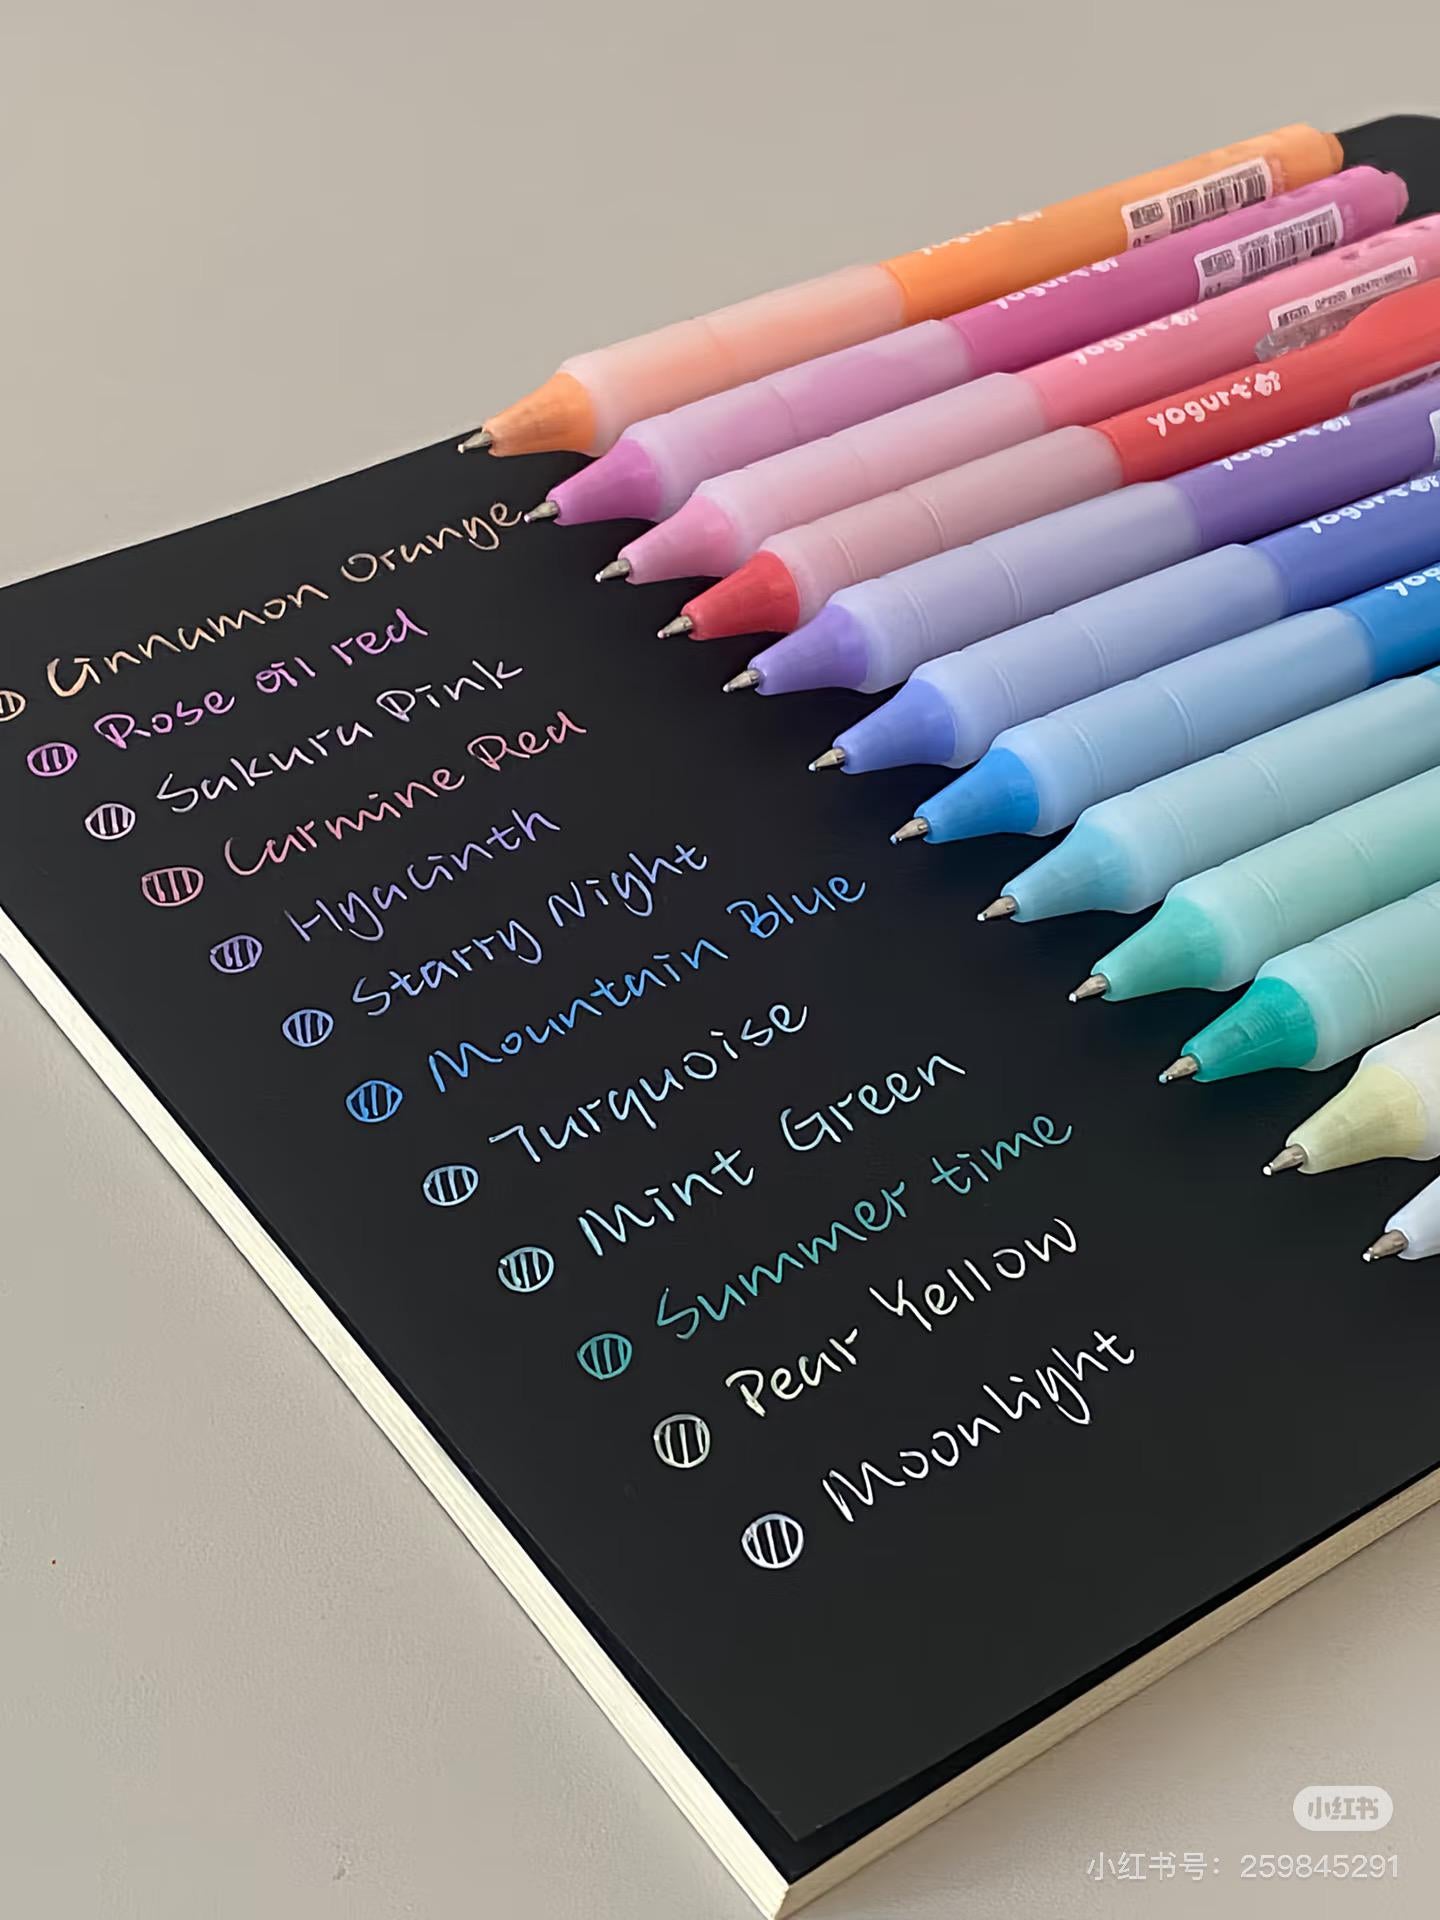 yogurt
yogurt
yogurt
yogurt
yogurt
yogurt
Cinnamon Orange
Rose oil red
Sakura Pink
Carmine Red
Hyacinth
Starry Night
Mountain Blue
Turquoise
Mint Green
Summer time
Pear Yellow
Moonlight
小红书
小红书号：259845291